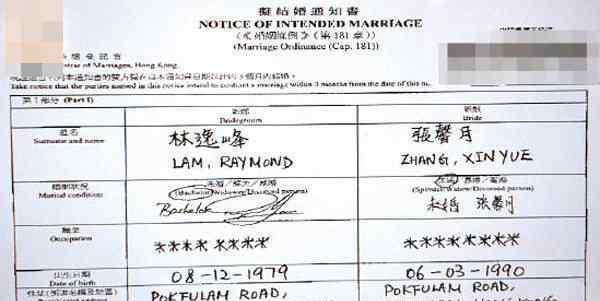 擬結婚通知書
NOTICE OF INTENDED MARRIAGE
(《婚姻條例》(第 181 章))
(Marriage Ordinance (Cap. 181))
of Marriages, Hong Kong.
Take notice that the parties named in this notice intend to contract a marriage within 3 months from the date of this
第 I 部分 (Part I)
新郎 新娘
Bridegroom Bride
姓名 林逸峰 張馨月
Surname and name LAM, RAYMOND ZHANG, XINYUE
婚姻狀況
Marital condition (Bachelor/Widower/Divorced person) (Spinster/Widow/Divorced person)
Bachelor 未婚 張馨月
職業
Occupation ********* *********
出生日期 08-12-1979 06-03-1990
Date of birth
POKFULAM ROAD, POKFULAM ROAD,